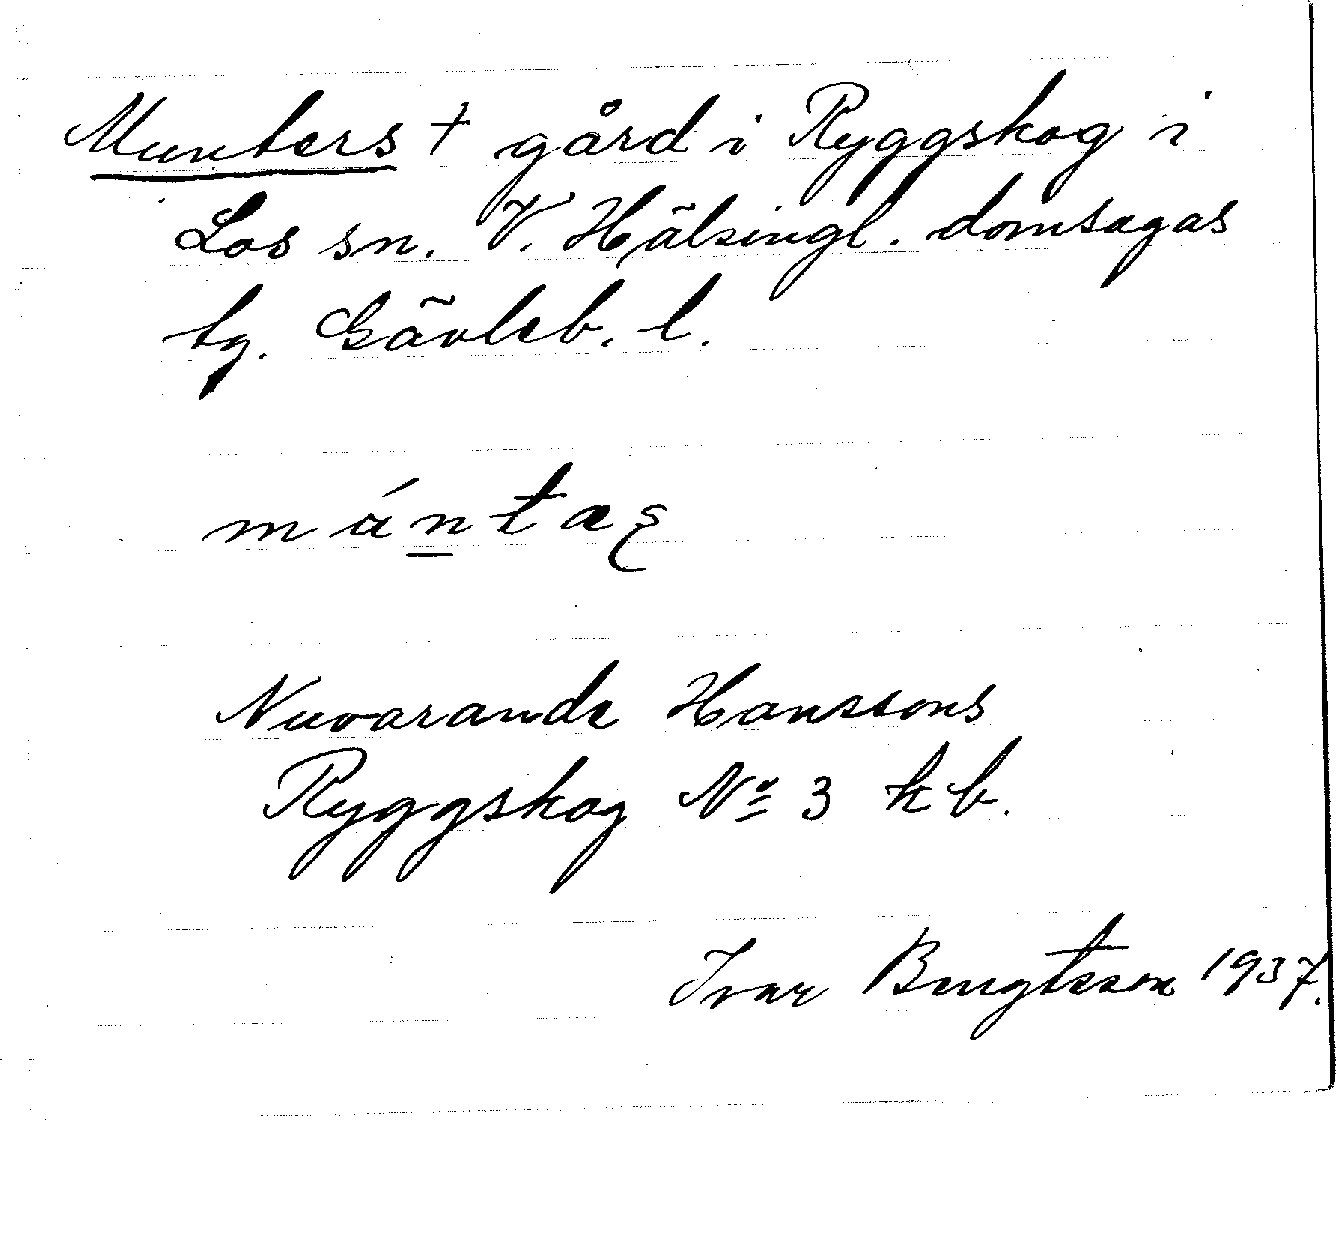 Munters + gård i Ryggskog i
Los sn. V. Hälsingl. domsagas
tg. Gävleb. l.
Nuvarande Hanssons
Ryggskog Nº 3 kb.
Ivar Bengtsson 1937.